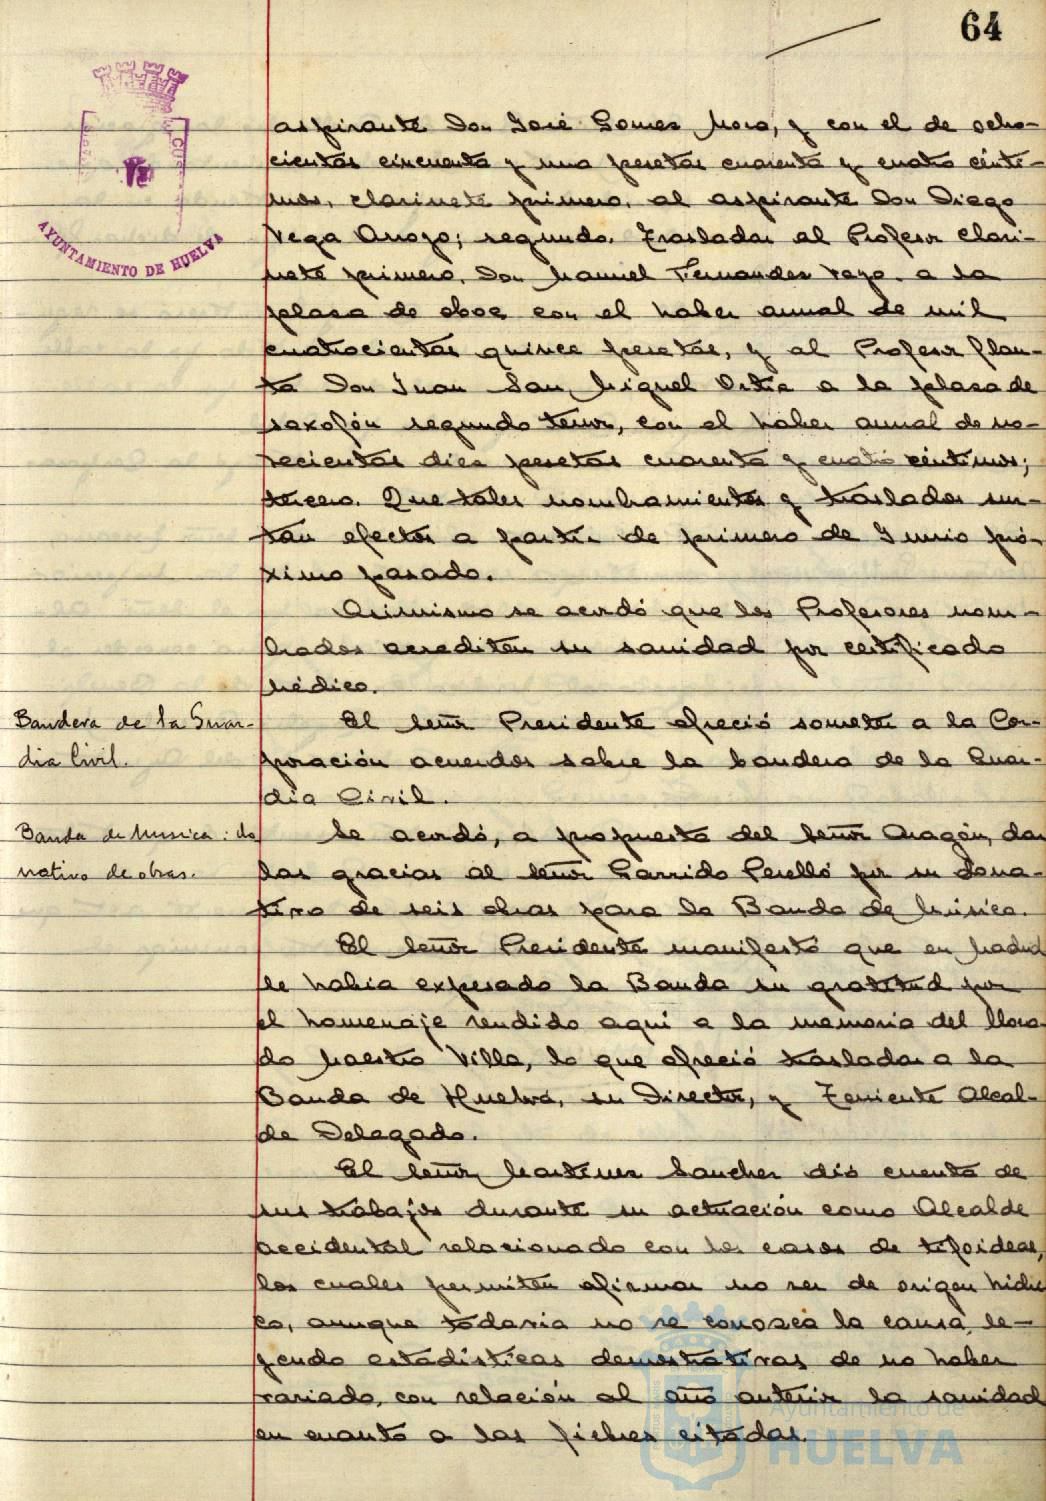 64
AYUNTAMIENTO DE HUELVA
aspirante Don José Gomez Mora, y con el de ocho-
cientas cincuenta y una pesetas cuarenta y cuatro cénti-
mos, clarinete primero, al aspirante Don Diego
Vega Arroyo; segundo. Trasladar al Profesor clari-
nete primero, Don Manuel Fernandez Vega a la
plaza de oboe con el haber anual de mil
cuatrocientas quince pesetas, y al Profesor flau-
ta Don Juan San Miguel Ortiz a la plaza de
saxofón segundo tenor, con el haber anual de no-
vecientas diez pesetas cuarenta y cuatro céntimos;
tercero. Que tales nombramientos y traslados sur-
tan efectos a partir de primero de Junio pró-
ximo pasado.
Asimismo se acordó que los Profesores nom-
brados acrediten su sanidad por certificado
médico.
Bandera de la Guar-
dia Civil.
El Señor Presidente ofreció someter a la Cor-
poración acuerdos sobre la bandera de la Guar-
dia Civil.
Banda de Musica: do
nativo de obras.
Se acordó, a propuesta del Señor Aragón, dar
las gracias al Señor Garrido Perelló por su dona-
tivo de seis obras para la Banda de Música.
El Señor Presidente manifestó que en Madrid
le había expresado la Banda su gratitud por
el homenaje rendido aquí a la memoria del llora-
do Maestro Villa, lo que ofreció trasladar a la
Banda de Huelva, su Director, y Teniente Alcal-
de Delegado.
El Señor Martinez Sanchez dió cuenta de
sus trabajos durante su actuación como Alcalde
accidental relacionado con los casos de tifoideas,
los cuales permiten afirmar no ser de origen hidri
co, aunque todavia no se conozca la causa, le-
yendo estadísticas demostrativas de no haber
variado, con relación al año anterior la sanidad
en cuanto a las fiebres citadas.
Ayuntamiento de
HUELVA